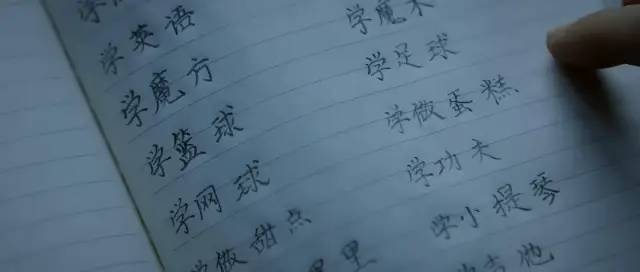 学
学英语
学魔方
学篮球
学网球
学做甜点
学魔术
学足球
学做蛋糕
学功夫
学小提琴